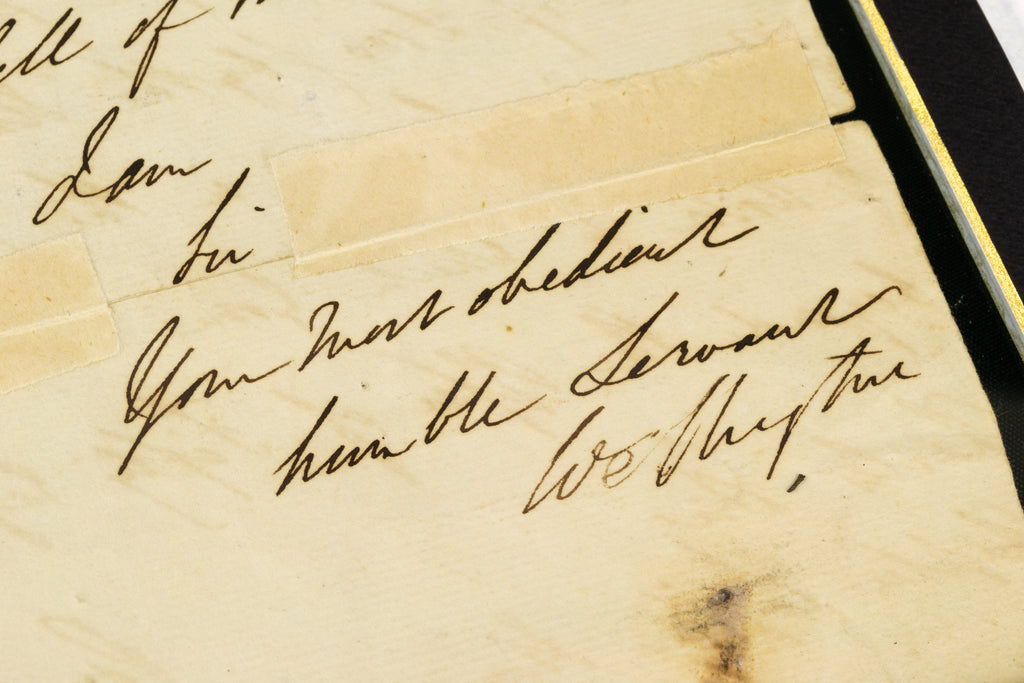 of
I am
Sir
Your most obedient
humble Servant
Wellington